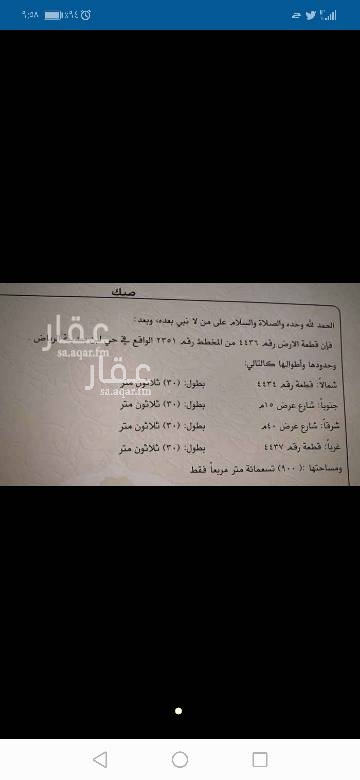 ٩:٥٨
٪٩٤
صك
الحمد لله وحده والصلاة والسلام على من لا نبي بعده، وبعد:
فإن قطعة الارض رقم ٤٤٣٦ من المخطط رقم ٢٣٥١ الواقع في حي الرياض .
وحدودها وأطوالها كالتالي:
شمالاً: قطعة رقم ٤٤٣٤ بطول: (٣٠) ثلاثون متر
جنوباً: شارع عرض ١٥م بطول: (٣٠) ثلاثون متر
شرقاً: شارع عرض ٤٠م بطول: (٣٠) ثلاثون متر
غرباً: قطعة رقم ٤٤٣٧ بطول: (٣٠) ثلاثون متر
ومساحتها :( ٩٠٠) تسعمائة متر مربعاً فقط
عقار
sa.aqar.fm
عقار
sa.aqar.fm